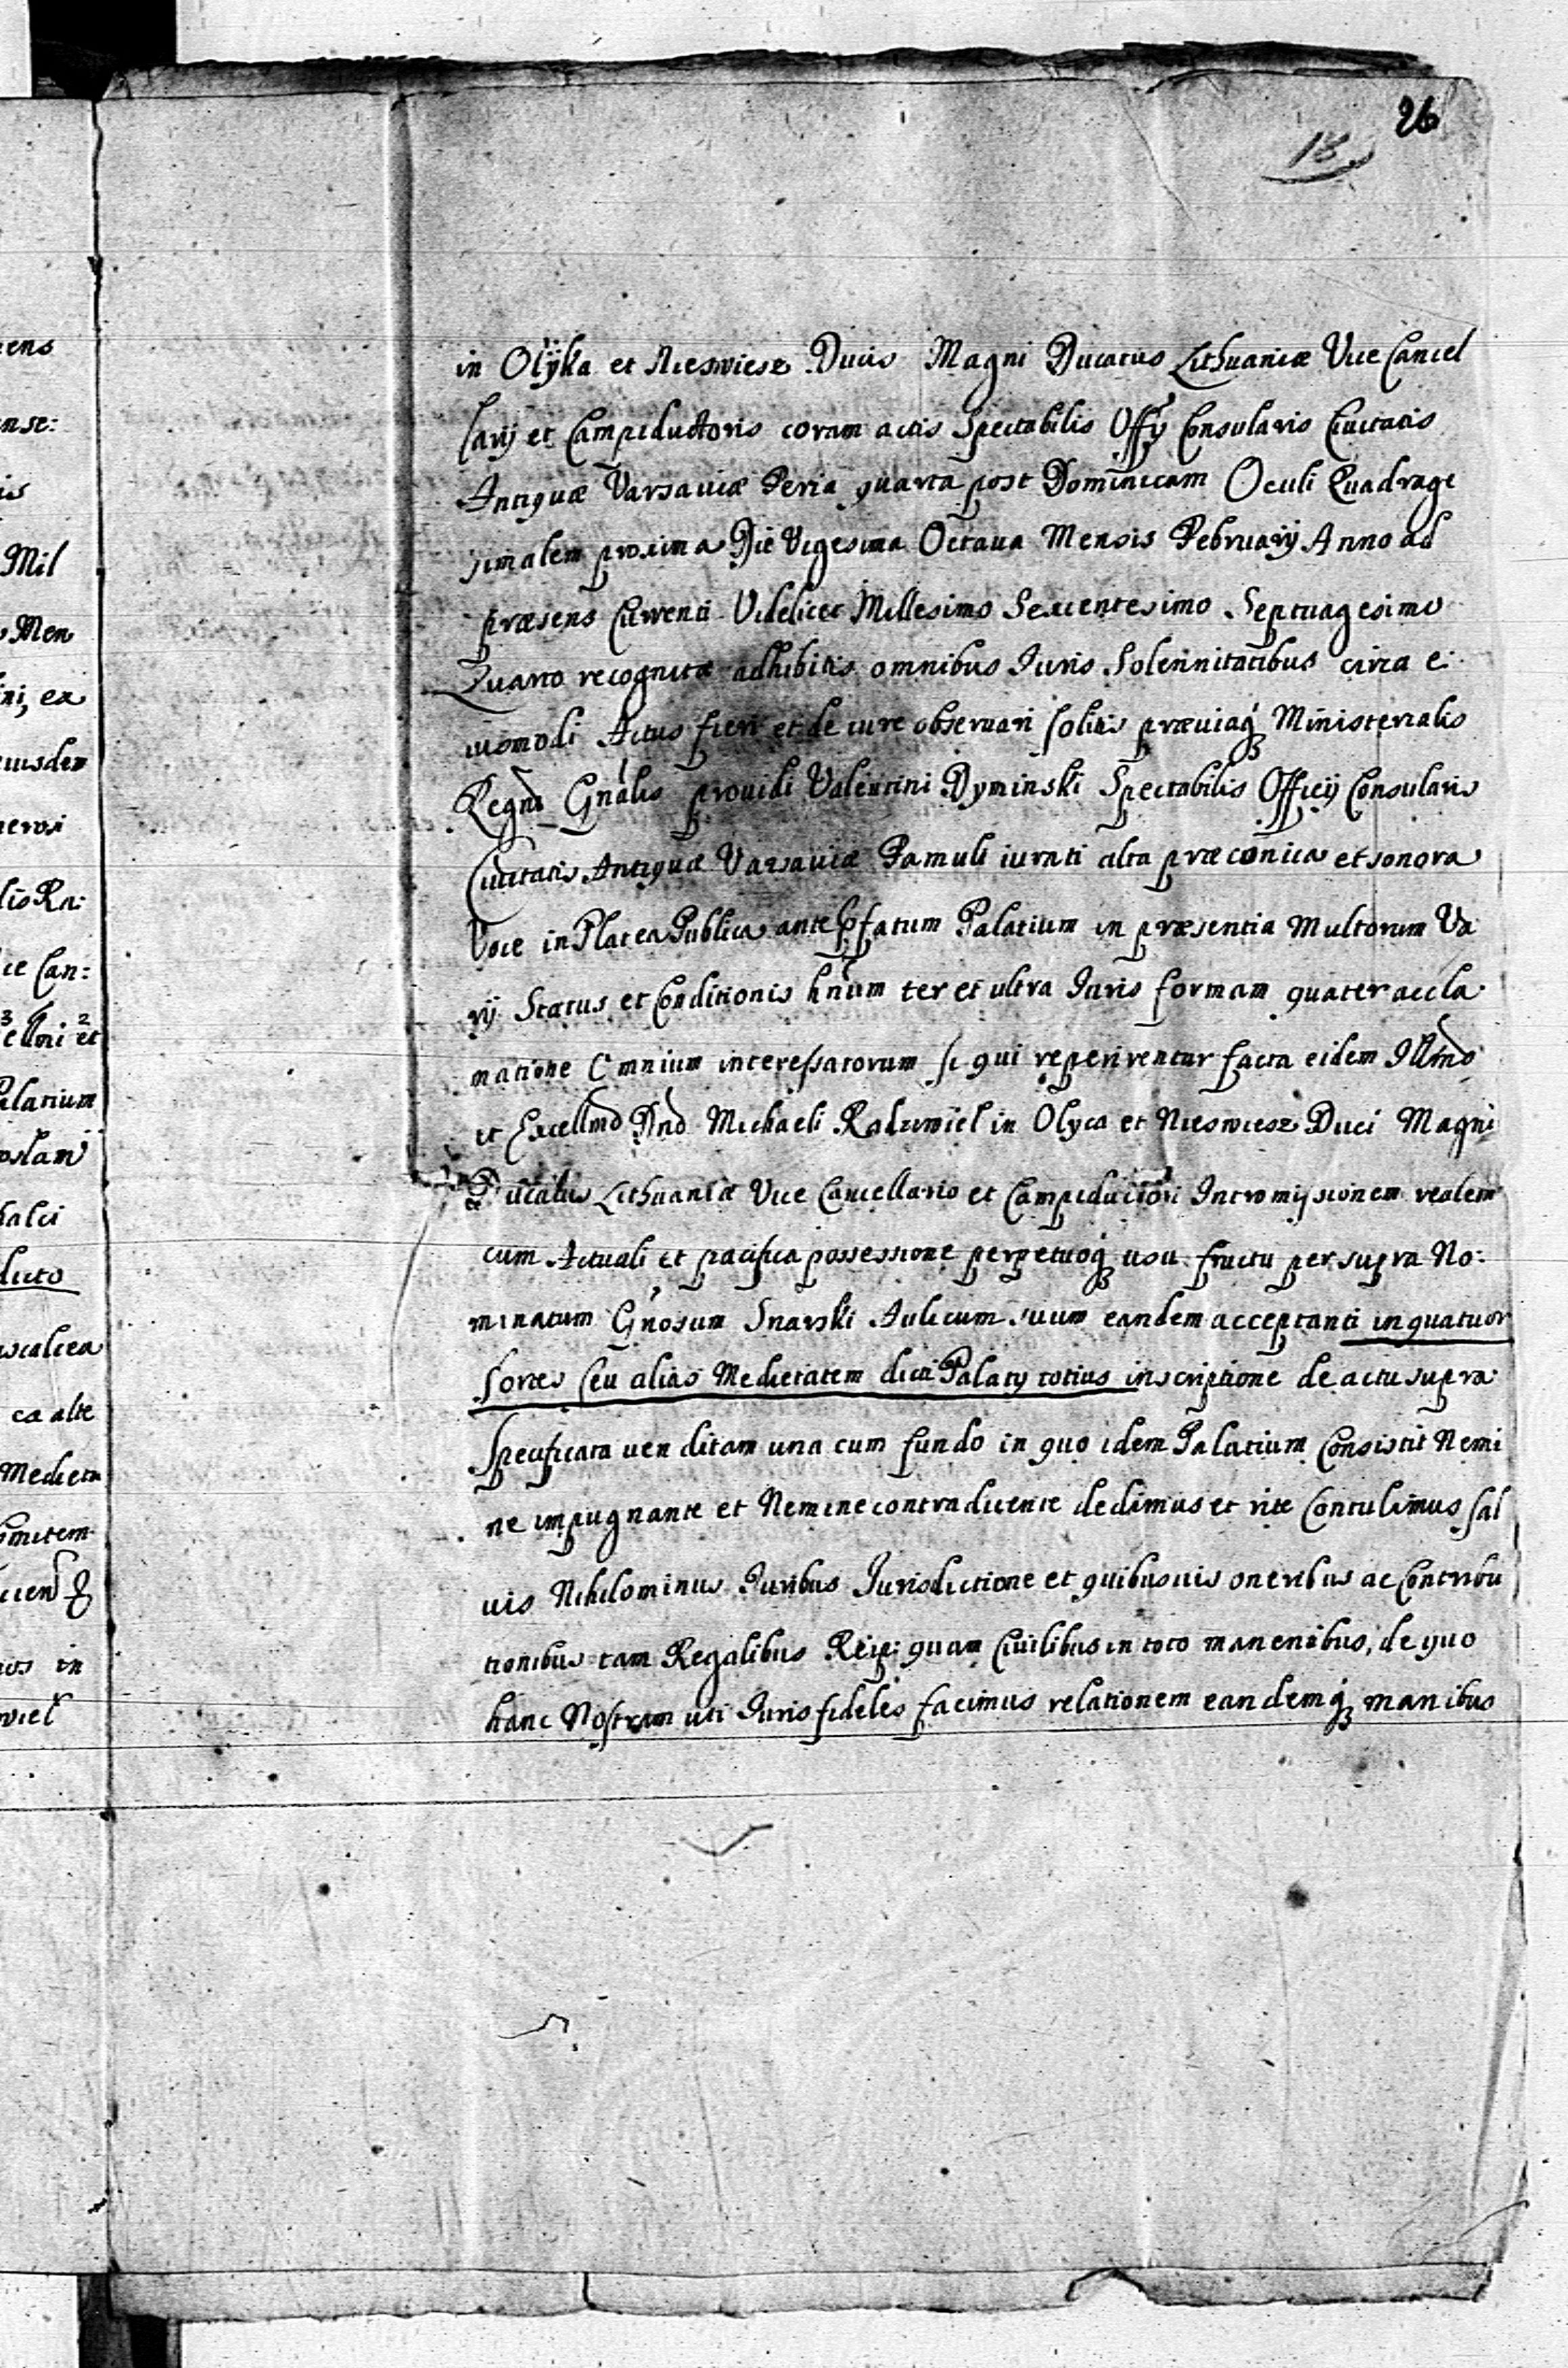 26
18
in Olÿka et Nieswiesz Ducis Magni Ducatus Lithuaniæ Vice Cancel
larij et Campiductoris coram actis Spectabilis Offÿ Consularis Ciuitatis
Antiquæ Varsauiæ Feria quarta post Dominicam Oculi Quadrage
simalem proxima Die Vigesima Octaua Mensis Februarij Anno ad
præsens Currenti Videlicet Millesimo Sexcentesimo Septuagesimo
Quarto recognitæ adhibitis omnibus Iuris Solennitatibus circa e:
iusmodi Actus fieri et de iure obseruari solitis præuiaq3 Ministerialis
Regni Gnalis prouidi Valentini Dyminski Spectabilis Officij Consularis
Ciuitatis Antiquæ Varsauiæ Famuli iurati alta præconica et sonora
Voce in Platea Publica ante pfatum Palatium in præsentia Multorum Va
rij Status et Conditionis hnum ter et ultra Iuris formam quater accla
matione Omnium interessatorum si qui reperirentur facta eidem Illmo
et Excellmo Dno Michaeli Radziwiel in Olyca et Nieswiesz Duci Magni
Ducatus Lithuaniæ Vice Cancellario et Campiductori Intromissionem realem
cum Actuali et pacifica possessione perpetuoq3 usu fructu per supra No:
minatum Gnosum Snarski Aulicum suum eandem acceptanti in quatuor
Sortes seu alias Medietatem dicti Palaty totius inscriptione de actu supra
Specificata uenditam una cum fundo in quo idem Palatium Consistit Nemi
ne impugnante et Nemine contradicente dedimus et rite Contulimus sal
uis Nihilominus Iuribus Iurisdictione et quibusuis oneribus ac Contribu
tionibus tam Regalibus Reip: quam Ciuilibus in toto manentibus, de quo
hanc Nostram uti Iuris fideles facimus relationem eandemq3 manibus